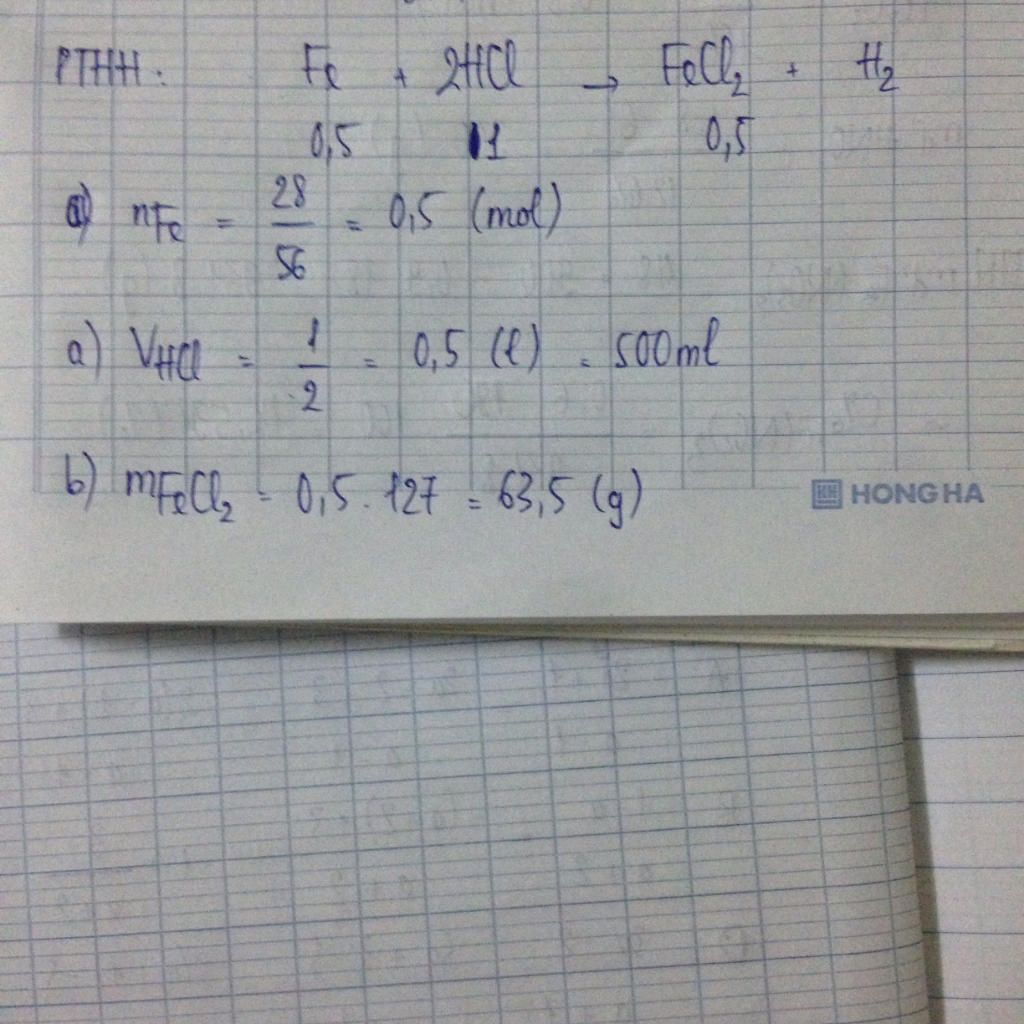 PTHH: Fe + 2HCl → FeCl₂ + H₂
0,5 1 0,5
nFe = 28/56 = 0,5 (mol)
a) VHCl = 1/2 = 0,5 (l) = 500ml
b) mFeCl₂ = 0,5 . 127 = 63,5 (g)
HH HONG HA